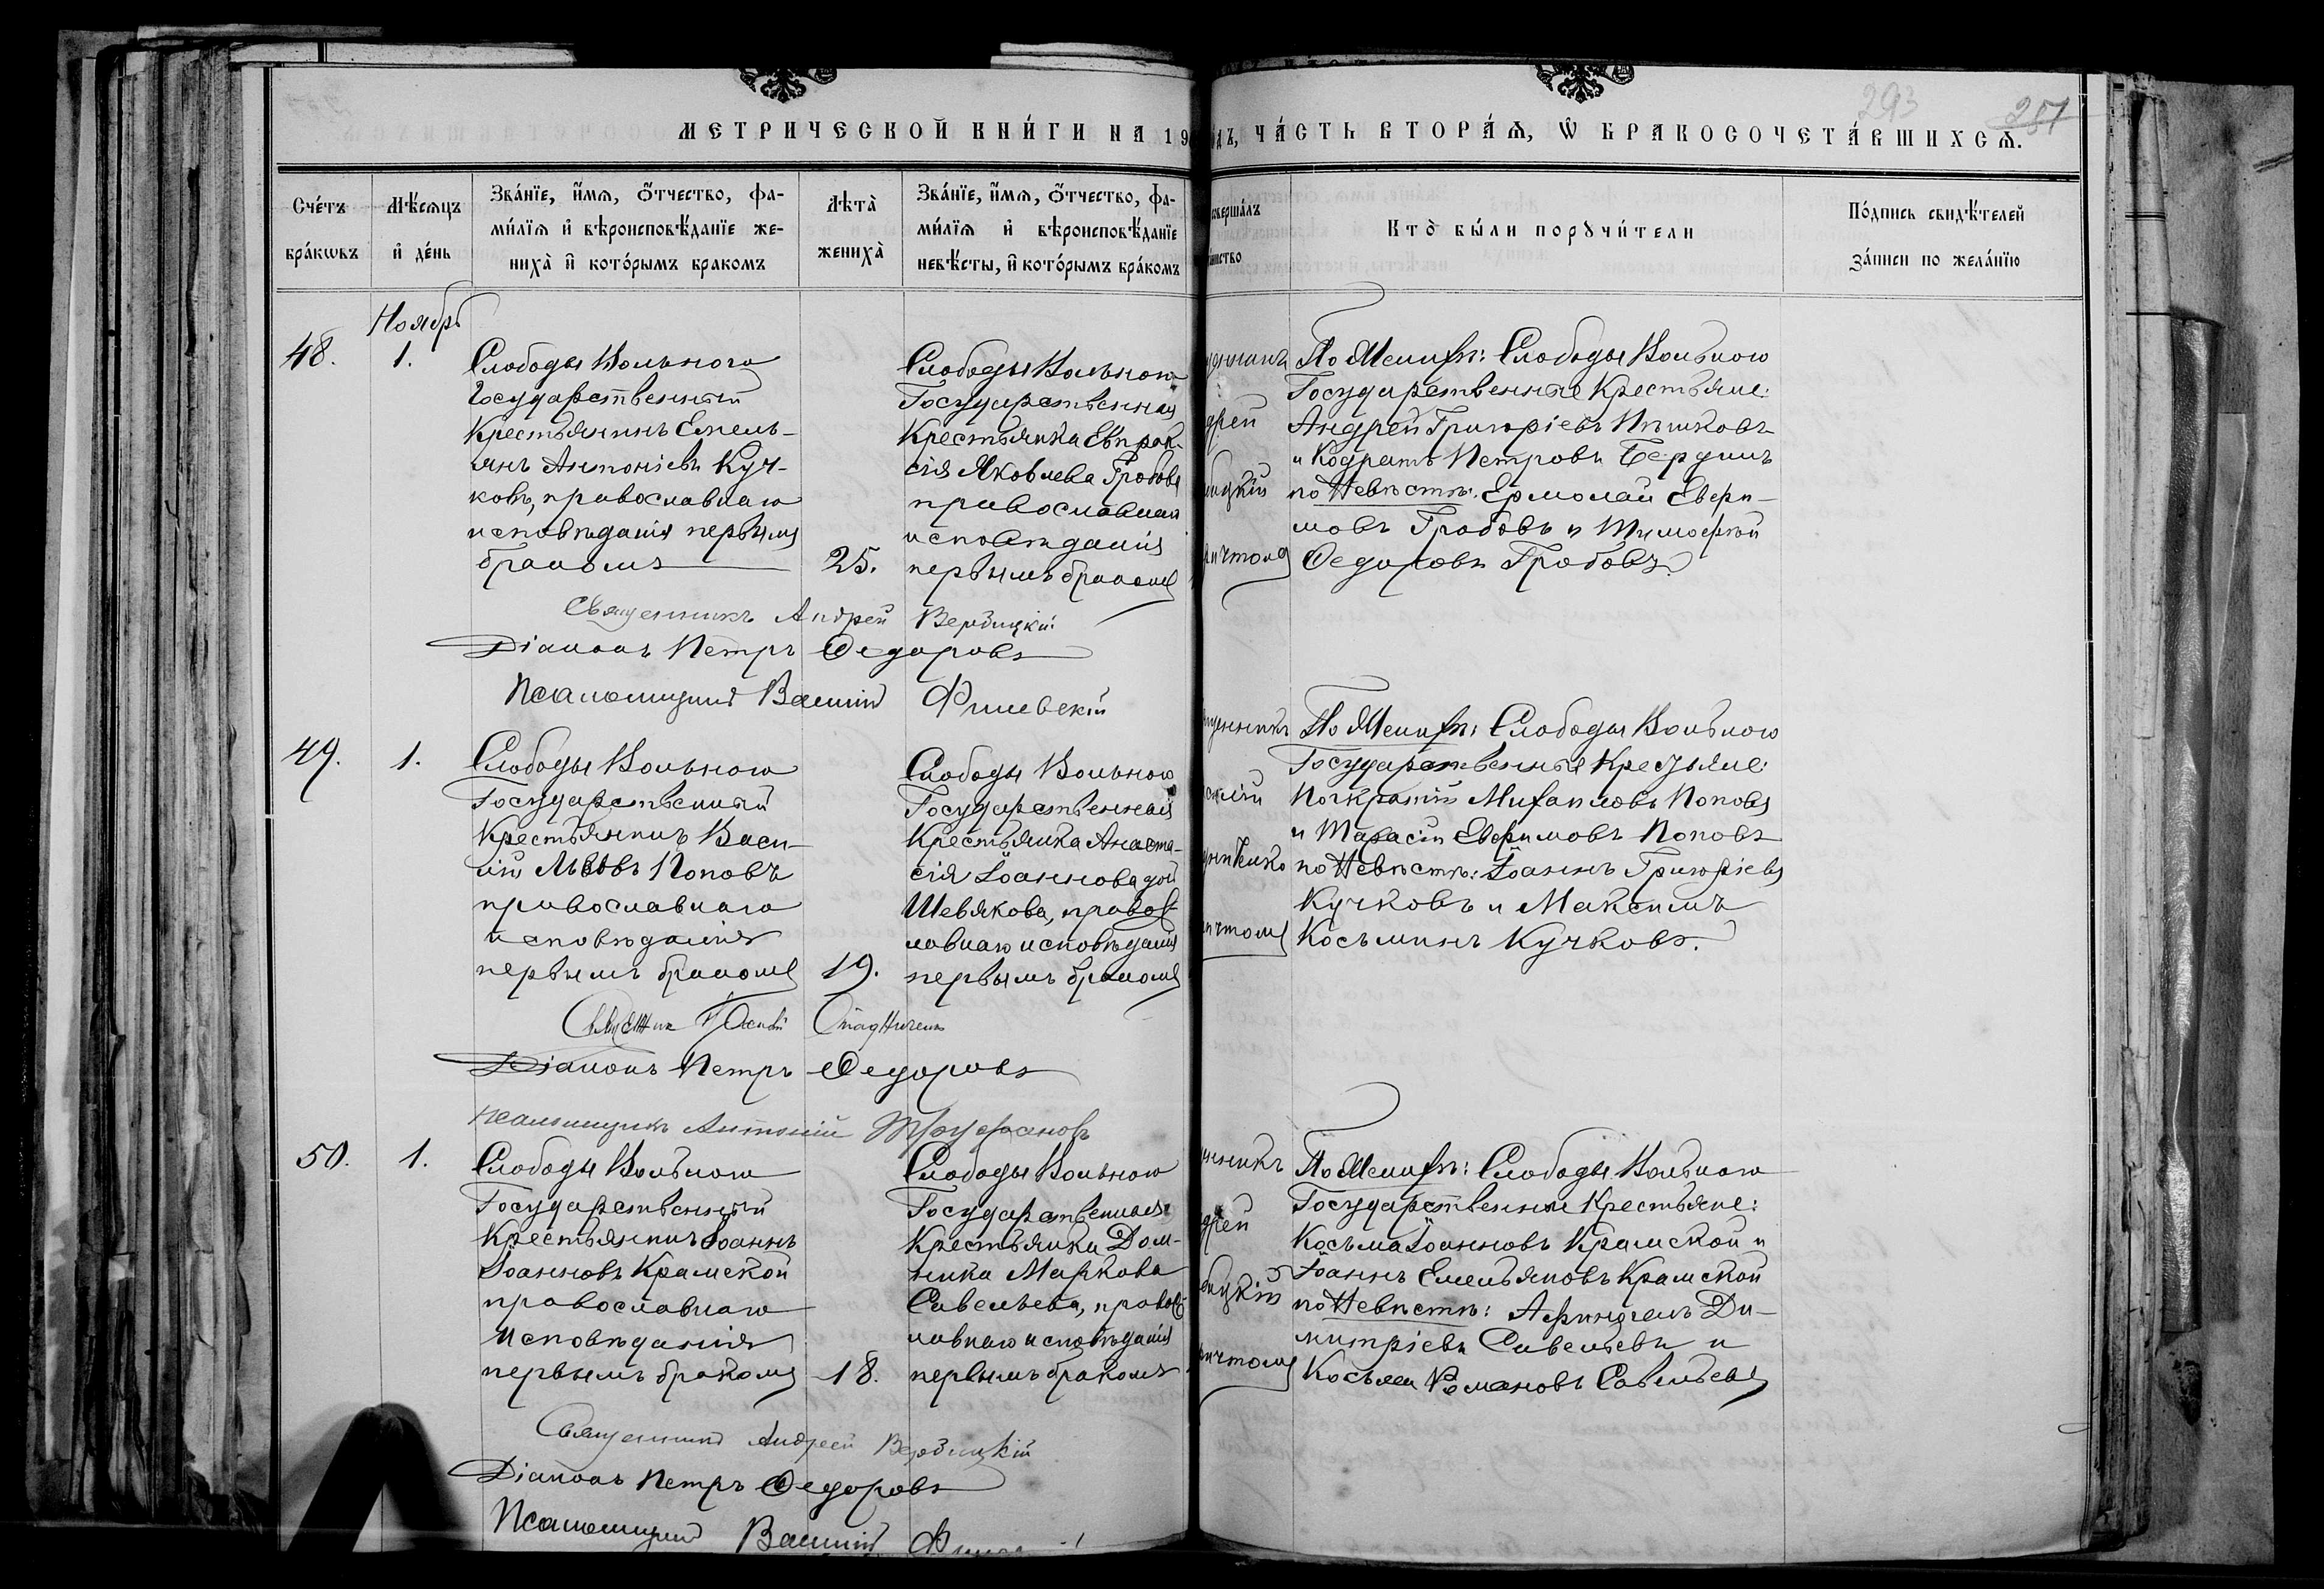 293 251
МЕТРИЧЕСКОЙ КНИ́ГИ НА 19
дъ, ЧА́СТЬ ВТОРА́Ѧ, Ѡ҆ БРАКОСОЧЕТА́ВШИХСѦ.
Сче́тъ
бра́кѡвъ
Мѣ́сѧцъ
и҆ де́нь
Зва́нїе, и҆́мѧ, о҆́тчество, фа-
ми́лїѧ и҆ вѣроисповѣ́данїе же-
ниха̀ и҆ кото́рымъ бракомъ
Лѣта̀
жениха̀
Зва́нїе, и҆́мѧ, о҆́тчество, фа-
ми́лїѧ и҆ вѣроисповѣ́данїе
невѣ́сты, и҆ кото́рымъ бра́комъ
совершалъ
Кто̀ бы́ли порꙋчи́тели
По́дпись свидѣ́телей
за́писи по жела́нїю
Ноябрь
48.
1.
Слободы Вольного
Государственный
Крестьянинъ Емель-
янъ Антоніевъ Куч-
ковъ, православнаго
исповѣданія первымъ
бракомъ
25.
Слободы Вольного
Государственная
Крестьянка Евпрак-
сія Яковлева Гробова
православнаго
исповѣданія
первымъ бракомъ
дрей
ицкій
ичтомъ
По Женихѣ: Слободы Вольного
Государственные Крестьяне:
Андрей Григоріевъ
и Кодратъ Петровъ
по Невѣстѣ: Ермолай Евфи-
мовъ Гробовъ и Тимофей
Федоровъ Гробовъ.
Священникъ Андрей Вербицкій
Діаконъ Петръ Федоровъ
Псаломщикъ Василій
49.
1.
Слободы Вольного
Государственный
Крестьянинъ Васи-
лій Львовъ Поповъ
православнаго
исповѣданія
первымъ бракомъ
19.
Слободы Вольного
Государственная
Крестьянка Анаста-
сія Іоаннова дочь
Шевякова, правос-
лавнаго исповѣданія
первымъ бракомъ
ичтомъ
По Женихѣ: Слободы Вольного
Государственные Крестьяне:
Панкратій Михаиловъ Поповъ
и Тарасій Евфимовъ Поповъ
по Невѣстѣ: Іоаннъ Григоріевъ
Кучковъ и Максимъ
Косьминъ Кучковъ.
Діаконъ Петръ Федоровъ
псаломщикъ Антоній Труфановъ
50.
1.
Слободы Вольного
Государственный
Крестьянинъ Іоаннъ
Іоанновъ Крамской
православнаго
исповѣданія
первымъ бракомъ
18.
Слободы Вольного
Государственная
Крестьянка Дом-
ника Маркова
Савельева, правос-
лавнаго исповѣданія
первымъ бракомъ
дрей
бицкій
ичтомъ
По Женихѣ: Слободы Вольного
Государственные Крестьяне:
Косьма Іоанновъ Крамской и
Іоаннъ Емельяновъ Крамской
по Невѣстѣ: Ди-
митріевъ Савельевъ и
Косьма Романовъ Савельевъ
Священникъ Андрей Вербицкій
Діаконъ Петръ Федоровъ
Псаломщикъ Василій